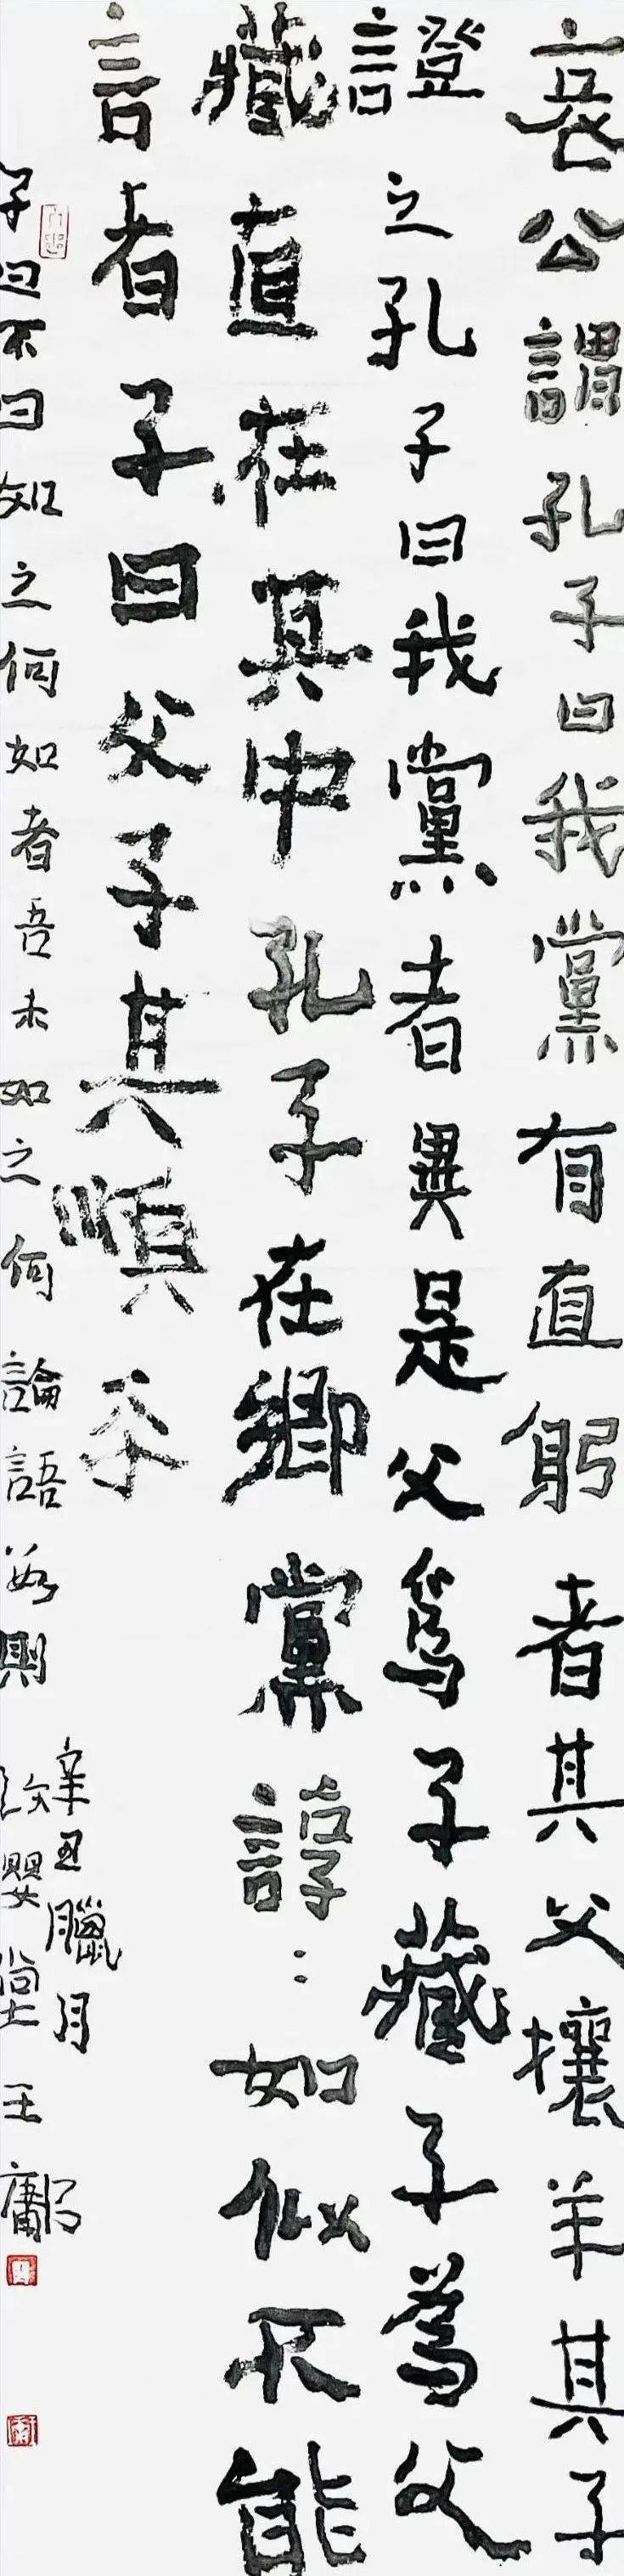 哀公謂孔子曰我黨有直躬者其父攘羊其子
證之孔子曰我黨者異是父為子藏子為父
藏直在其中孔子在鄉黨諄〻如似不能
言者子曰父子其順乎
子曰不曰如之何如者吾末如之何論語數則
辛丑臘月
堂王